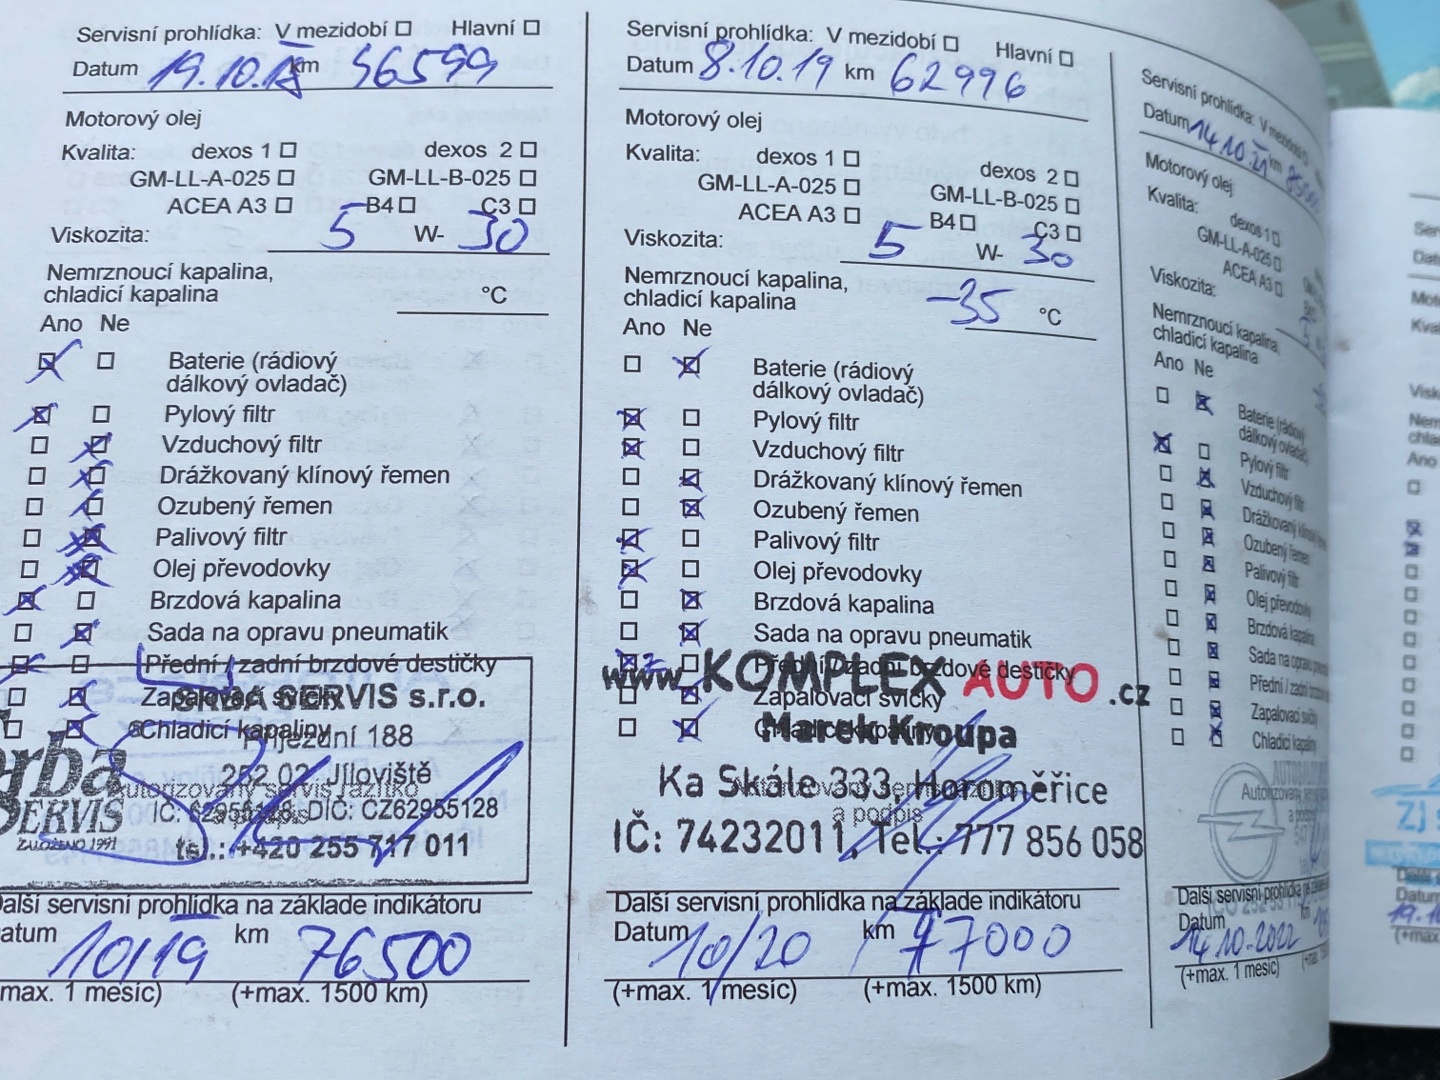 Servisní prohlídka: V mezidobí Hlavní
Datum 19.10.18 km 46599
Motorový olej
Kvalita: dexos 1 dexos 2
GM-LL-A-025 GM-LL-B-025
ACEA A3 B4 C3
Viskozita: 5 W- 30
Nemrznoucí kapalina,
chladicí kapalina °C
Ano Ne
Baterie (rádiový
dálkový ovladač)
Pylový filtr
Vzduchový filtr
Drážkovaný klínový řemen
Ozubený řemen
Palivový filtr
Olej převodovky
Brzdová kapalina
Sada na opravu pneumatik
Přední / zadní brzdové destičky
Zapalovací svíčky
SRBA SERVIS s.r.o.
Chladicí kapaliny
Příjezdní 188
252 02 Jíloviště
Autorizovaný servis razítko
a podpis
IČ: 62955128, DIČ: CZ62955128
SERVIS
ZALOŽENO 1991
tel.: +420 255 717 011
Další servisní prohlídka na základě indikátoru
Datum 10/19 km 76500
(+max. 1 mesíc) (+max. 1500 km)
Servisní prohlídka: V mezidobí Hlavní
Datum 8.10.19 km 62996
Motorový olej
Kvalita: dexos 1 dexos 2
GM-LL-A-025 GM-LL-B-025
ACEA A3 B4 C3
Viskozita: 5 W- 30
Nemrznoucí kapalina,
chladicí kapalina -35 °C
Ano Ne
Baterie (rádiový
dálkový ovladač)
Pylový filtr
Vzduchový filtr
Drážkovaný klínový řemen
Ozubený řemen
Palivový filtr
Olej převodovky
Brzdová kapalina
Sada na opravu pneumatik
Přední / zadní brzdové destičky
www.KOMPLEX AUTO.cz
Zapalovací svíčky
Marek Kroupa
Ka Skále 333, Horoměřice
a podpis
IČ: 74232011, Tel.: 777 856 058
Další servisní prohlídka na základe indikátoru
Datum 10/20 km 77000
(+max. 1 mesíc) (+max. 1500 km)
Servisní prohlídka: V mezidobí
Datum 14.10.21 km
Motorový olej
Kvalita: dexos 1
GM-LL-A-025
ACEA A3
Viskozita:
Nemrznoucí kapalina,
chladicí kapalina
Ano Ne
Baterie (rádiový
dálkový ovladač)
Pylový filtr
Vzduchový filtr
Drážkovaný klínový řemen
Ozubený řemen
Palivový filtr
Olej převodovky
Brzdová kapalina
Sada na opravu
Přední / zadní brzdové
Zapalovací svíčky
Chladicí kapaliny
Autorizovaný
a podpis
Další servisní prohlídka
Datum km
14.10.2022
(+max. 1 mesíc)
Ano
ZJ
Datum
(+max